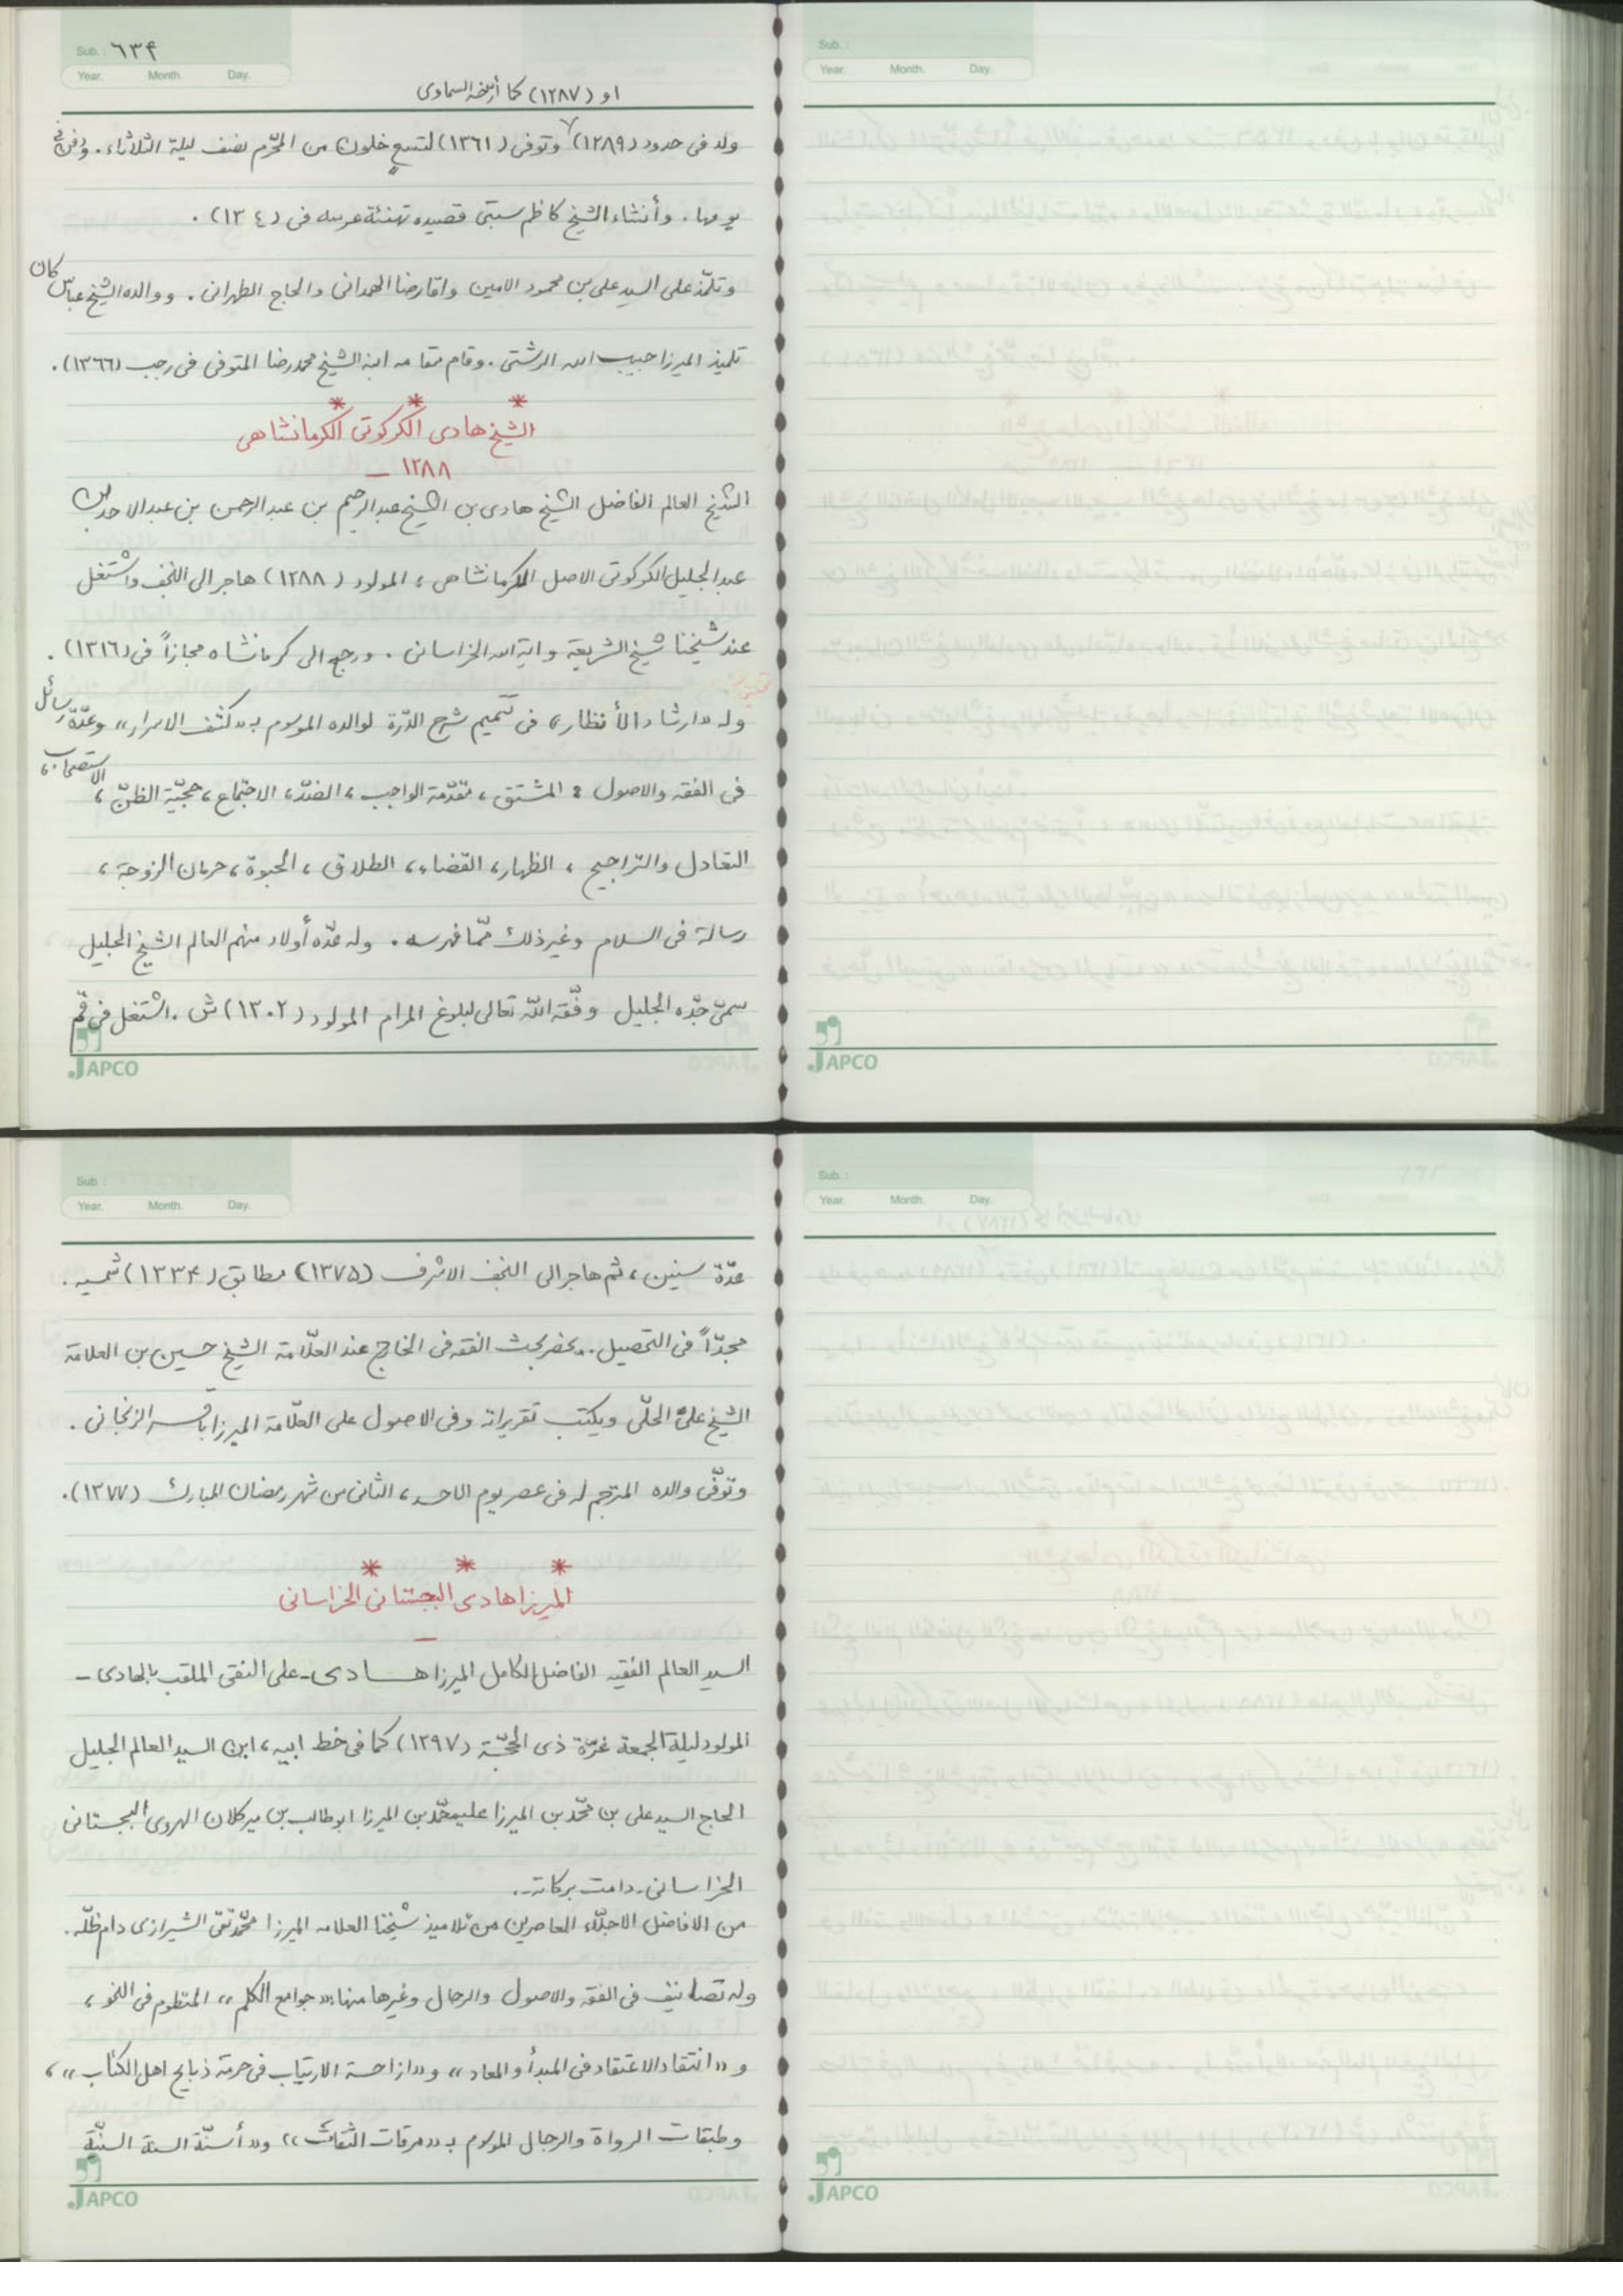 Sub.: ٦٣۴
Year. Month. Day.
او (١٢٨٧) كما أرخه السماوى
ولد فى حدود (١٢٨٩) وتوفى (١٣٦١) لتسع خلون من المحرّم نصف ليلة الثلاثاء. ودفن فى
يومها. وأنشاء الشيخ كاظم سبتى قصيده تهنئة عرسه فى (١٣٠٤).
وتلمّذ على السيد على بن محمود الامين واقا رضا الهمدانى والحاج الطهرانى. ووالده الشيخ عباس كان
تلميذ الميرزا حبيب الله الرشتى. وقام مقامه ابنه الشيخ محمد رضا المتوفى فى رجب (١٣٦٦).
* * *
الشيخ هادى الكركوتى الكرمانشاهى
١٢٨٨ –
الشيخ العالم الفاضل الشيخ هادى بن الشيخ عبد الرحيم بن عبد الرحمن بن عبد الاحد بن
عبد الجليل الكركوتى الاصل الكرمانشاهى، المولود (١٢٨٨) هاجر الى النجف واشتغل
عند شيخنا شيخ الشريعة واية الله الخراسانى. ورجع الى كرمانشاه مجازاً فى (١٣١٦).
وله «ارشاد الأنظار» فى تتميم شرح الدّرة لوالده الموسوم بـ «كشف الاسرار» وعدّة رسائل
فى الفقه والاصول: المشتق، مقدّمة الواجب، الضدّ، الاجتماع، حجيّة الظنّ، الاستصحاب،
التعادل والتراجيح، الظهار، القضاء، الطلاق، الحبوة، حرمان الزوجة،
رسالة فى السلام وغير ذلك ممّا فهرسه. وله عدّه أولاد منهم العالم الشيخ الجليل
سمىّ جدّه الجليل وفّقه الله تعالى لبلوغ المرام المولود (١٣٠٢) ش. اشتغل فى قم
JAPCO
Sub.:
Year. Month. Day.
JAPCO
Sub.:
Year. Month. Day.
عدّة سنين، ثم هاجر الى النجف الاشرف (١٣٧۵) مطابق (١٣٣۴) شمسيه.
مجدّاً فى التحصيل.. يحضر بحث الفقه فى الخارج عند العلّامة الشيخ حسين بن العلامة
الشيخ علىّ الحلّى ويكتب تقريراته وفى الاصول على العلّامة الميرزا باقر الزنجانى.
وتوفّى والده المترجم له فى عصر يوم الاحد، الثانى من شهر رمضان المبارك (١٣٧٧).
* * *
الميرزا هادى البجستانى الخراسانى
–
السيد العالم الفقيه الفاضل الكامل الميرزا هادى-على النقى الملقب بالهادى-
المولود ليلة الجمعة غرّة ذى الحجّة (١٢٩٧) كما فى خط ابيه، ابن السيد العالم الجليل
الحاج السيد على بن محّمد بن الميرزا عليمحّمد بن الميرزا ابو طالب بن مير كلان الهروى البجستانى
الخراسانى-دامت بركاته-.
من الافاضل الاجلّاء المعاصرين من تلاميذ شيخنا العلامه الميرزا محمّد تقى الشيرازى دام ظلّه.
وله تصانيف فى الفقه والاصول والرجال وغيرها منها: «جوامع الكلم» المنظوم فى النحو،
و «انتقاد الاعتقاد فى المبدأ والمعاد» و «ازاحة الارتياب فى حرمة ذبايح اهل الكتاب»،
وطبقات الرواة والرجال الموسوم بـ «مرقات الثقات» و «أسنّة السنة السنيّة
JAPCO
Sub.:
Year. Month. Day.
JAPCO